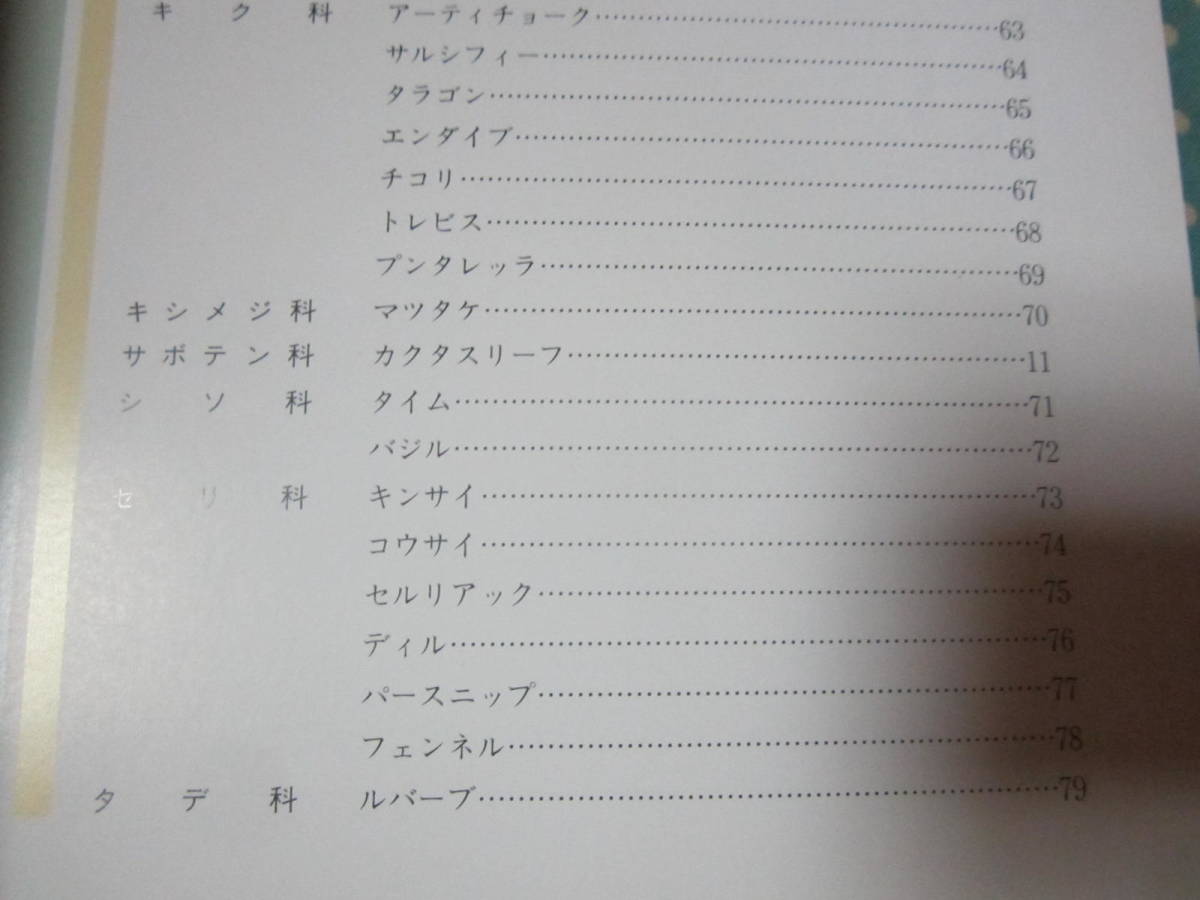 キク科 アーティチョーク……63
サルシフィー……64
タラゴン……65
エンダイブ……66
チコリ……67
トレビス……68
プンタレッラ……69
キシメジ科 マツタケ……70
サボテン科 カクタスリーフ……11
シソ科 タイム……71
バジル……72
セリ科 キンサイ……73
コウサイ……74
セルリアック……75
ディル……76
パースニップ……77
フェンネル……78
タデ科 ルバーブ……79